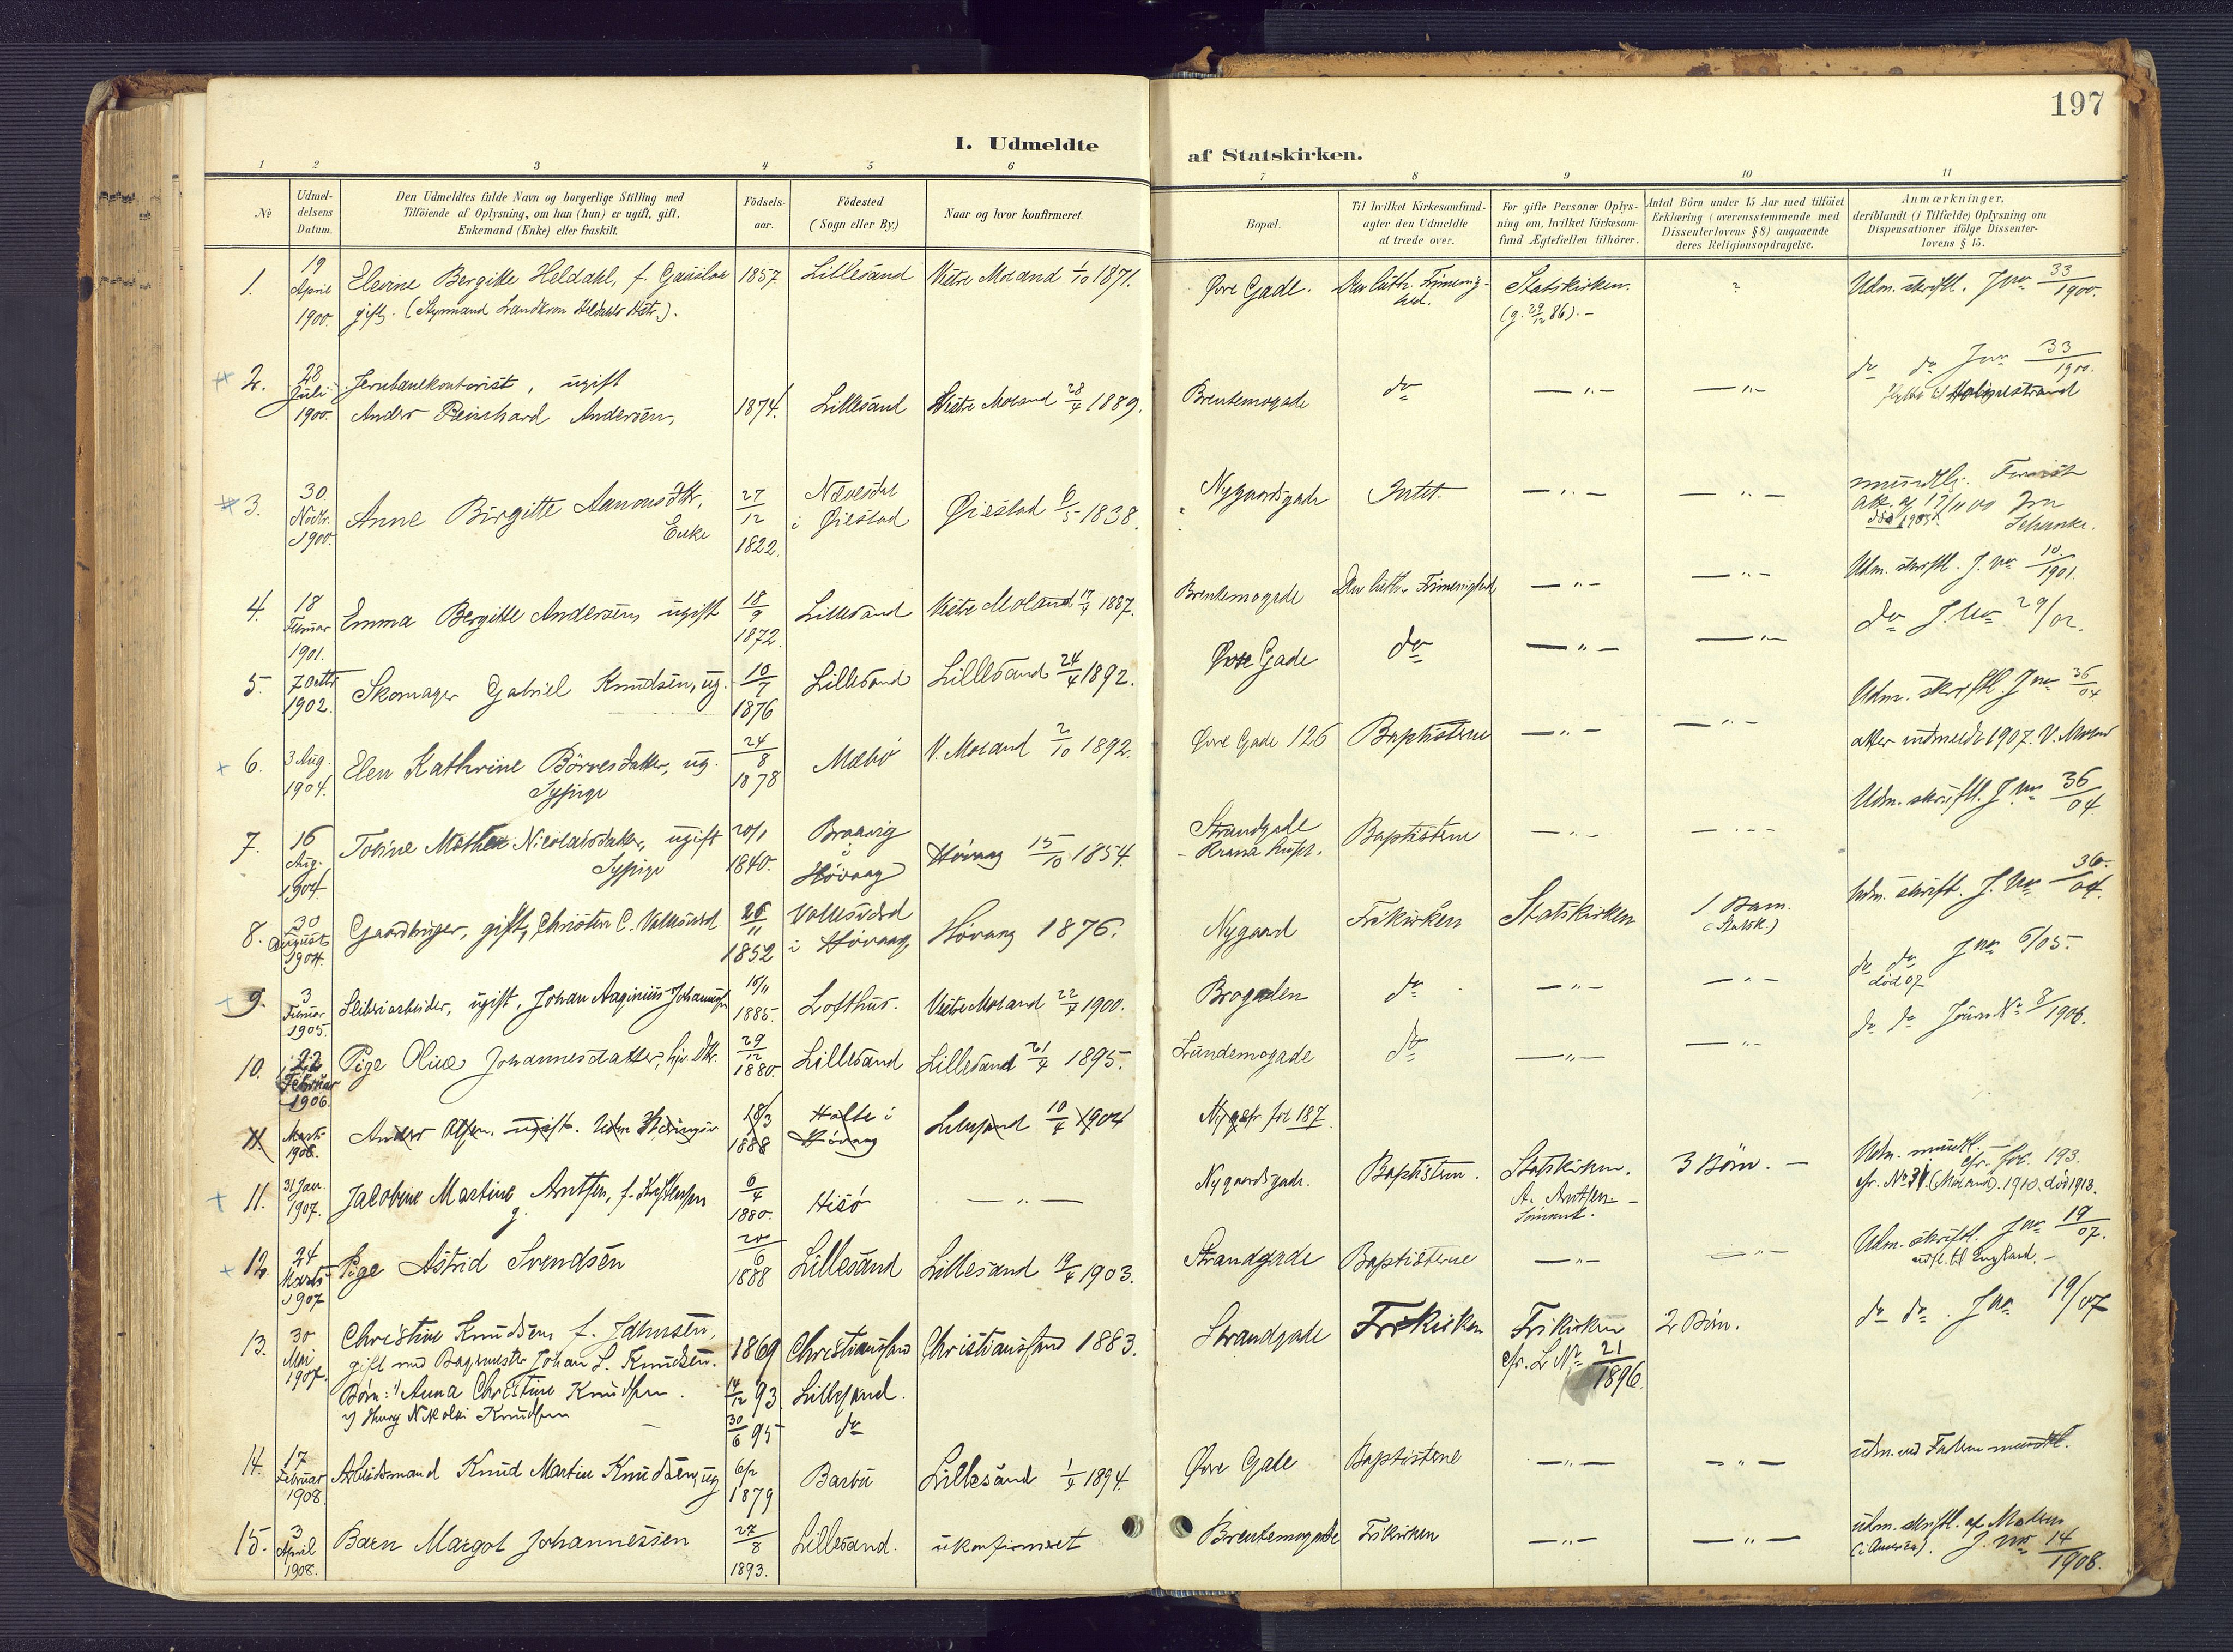 197
I. Udmeldte af Statskirken.
1 2 3 4 5 6 7 8 9 10 11
№
Udmel-
delsens
Datum.
Den Udmeldtes fulde Navn og borgerlige Stilling med
Tilföiende af Oplysning, om han (hun) er ugift, gift,
Enkemand (Enke) eller fraskilt.
Födsels-
aar.
Födested
(Sogn eller By.)
Naar og hvor konfirmeret.
Bopæl.
Til hvilket Kirkesamfund-
agter den Udmeldte
at træde over.
For gifte Personer Oplys-
ning om, hvilket Kirkesam-
fund Ægtefællen tilhörer.
Antal Börn under 15 Aar med tilföiet
Erklæring (overensstemmende med
Dissenterlovens § 8) angaaende
deres Religionsopdragelse.
Anmærkninger,
deriblandt (i Tilfælde) Oplysning om
Dispensationer ifölge Dissenter-
lovens § 15.
1. 19 April 1900. Elevine Bergitte Heldahl, f. 1857 Lillesand Vestre Moland 1/10 1871. Øvre Gade. Den luth. Frimenig-
hed. Statskirken. ? Udm. skriftl. Jno 33/1900.
gift. (g. 29/12 86). -
2. 28 Juli 1900. Jernbanekontorist, ugift
Anders Reinhard Andersen, 1874. Lillesand Vestre Moland 28/4 1889. Brentemogade do — " — — " — do do Jno 33/1900.
Flyttet til Holmestrand
3. 30 Novbr. 1900. Anne Birgitte Aanonsdtr, Enke 27/12 1822. i Øiestad Øiestad 6/5 1838. Nygaardsgade Intet. — " — — " — mundtlig.
død 1905
4. 18 Februar 1901. Emma Bergitte Andersen, ugift 18/9 1872. Lillesand Vestre Moland 17/4 1887. Brentemogade Den luth. Frimenighed — " — — " — Udm. skriftl. J. no 10/1901.
5. 7 Octbr 1902. Skomager Gabriel Knudsen, ug. 10/7 1876 Lillesand Lillesand 24/4 1892. Øvre Gade do — " — — " — do J. no 29/02.
6. 3 Aug. 1904. Elen Kathrine Börresdatter, ug. Sypige 24/8 1878 Mæbö V. Moland 2/10 1892. Øvre Gade 126 Baptisterne — " — — " — Udm. skriftl. Jno 36/04
atter indmeldt 1907. V. Moland
7. 16 Aug. 1904. Tobine Mathea Nicolaisdatter, ugift Sypige 20/1 1840. Braavig i Høvaag Høvaag 15/10 1854. Strandgade Baptisterne — " — — " — Udm. skriftl. J no 36/04.
8. 30 August 1904. Gaardbruger, gift, Christen C. Vallesverd 26/11 1852 Vallesverd i Høvaag. Høvaag 1876. Nygaard Frikirken Statskirken 1 Barn. (Statsk.) Udm. skriftl. J. no 36/04.
9. 3 Februar 1905. Sliberiarbeider, ugift, Johan Johannesen 15/11 1885. Lofthus. Vestre Moland 22/4 1900. Brogaden do — " — — " — do do Jno 6/05.
död 07
10. 22 Februar 1906. Pige Oliva Johannesdatter, 29/12 1880. Lillesand Lillesand 21/4 1895. Lundemogade do — " — — " — do do Journ No 8/1906.
11. Marts 1908. Anders Olsen, ugift. 18/3 1888 Holte i Høvaag Lillesand 10/4 1904 fol 187.
11. 31 Jan. 1907. Jacobine Martine Arntsen, f. g. 6/4 1880. Hisö — " — Nygaardsgade. Baptistern. Statskirken. A. Arntsen - Sömand. 3 Börn. — Udm. mundtl. - cfr. fol. 193.
cfr. No 31. (Moland). 1910. död 1918.
12. 24 Marts 1907 Pige Astrid Svendsen 20/6 1888 Lillesand Lillesand 19/4 1903. Strandgade Baptisterne — " — — " — Udm. skriftl. Jno 19/07.
udfl. til England. -
13. 30 Mai 1907. Christine Knudsen f. Johnsen, 1869 Christianssand Christianssand 1883. Strandgade Frikirken Frikirken 2 Börn. do do. Jno 19/07
gift med Bagermester Johan L. Knudsen. cfr. L No 21/1896.
Börn: 1) Anna Christine Knudsen. 14/12 93 Lillesand.
2) Nikolai Knudsen 30/6 95 do
14. 17 Februar 1908. Arbeidsmand Knud Martin Knudsen, ug 6/2 1879 Barbu Lillesand 1/4 1894. Øvre Gade Baptisterne — " — — " — udm. ved Faderen mundtl.
15. 3 April 1908. Barn Margot Johannessen 27/8 1893. Lillesand. ukonfirmeret Brentemogade Frikirken — " — — " — udm. skriftl. af Moderen
(i Amerika). J. no 14/1908.